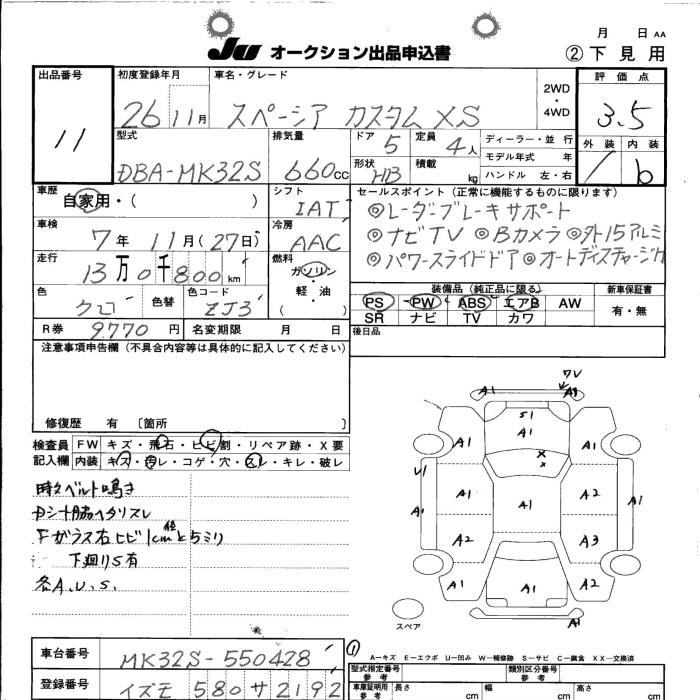 月 日 AA
JU オークション出品申込書 ②下見用
出品番号 11
初度登録年月 26 11月
車名・グレード スペーシア カスタム XS
2WD ・ 4WD
評価点 3.5
外装 内装 b
型式 DBA-MK32S
排気量 660cc
ドア 5
定員 4人
形状 HB
積載 kg
ディーラー・並行
モデル年式 年
ハンドル 左・右
車歴 自家用・( )
シフト IAT
セールスポイント (正常に機能するものに限ります)
◎レーダーブレーキサポート
◎ナビTV ◎Bカメラ ◎外15アルミ
◎パワースライドドア ◎オートディスチャージ
車検 7年 11月(27日)
冷房 AAC
走行 13万0千800km
燃料 ガソリン・軽・油 ( )
色 クロ
色替
色コード ZJ3
装備品 (純正品に限る)
新車保証書
PS PW ABS エアB AW
SR ナビ TV カワ
有・無
R券 9770円
名変期限 月 日
後日品
注意事項申告欄 (不具合内容等は具体的に記入してください)
修復歴 有 〔箇所 〕
検査員記入欄
FW キズ・飛石・ヒビ割・リペア跡・X要
内装 キズ・汚レ・コゲ・穴・スレ・キレ・破レ
時々ベルト鳴き
Dシート脇ヘタリスレ
Fガラス右ヒビ1cm径と5ミリ
下廻りS有
各A.U.S.
A1
S1
A1
A1 A1
U1
A1 A1 A1 A2 A1
A2 A3
A1 A1 A1
A1
スペア
A-キズ E-エクボ U-凹み W-補修跡 S-サビ C-腐食 XX-交換済
車台番号 MK32S-550428
登録番号 イズモ 580 サ 2192
①
型式指定番号 参考
類別区分番号 参考
車庫証明用 参考
長さ cm 幅 cm 高さ cm